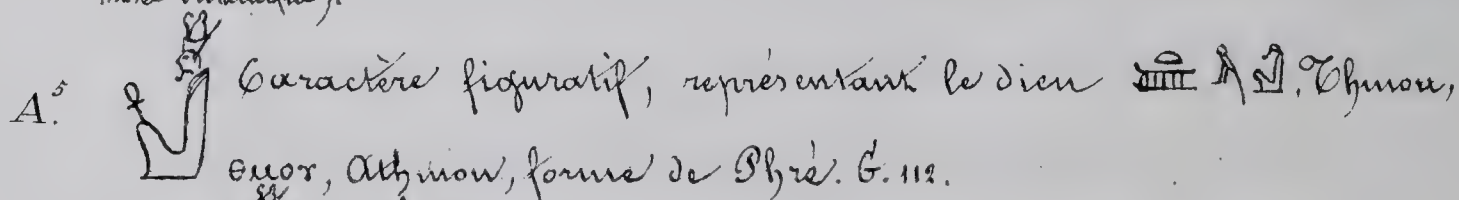 A.⁵ Caractère figuratif, représentant le dieu Thmou,
ⲑⲙⲟⲩ, Athmou, forme de Phré. G. 112.